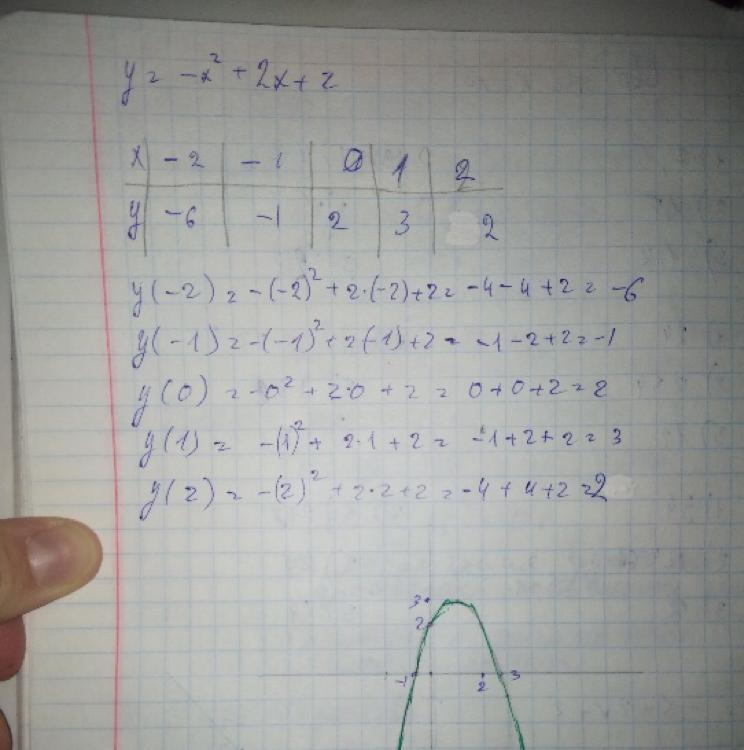 y = -x² + 2x + 2
x -2 -1 0 1 2
y -6 -1 2 3 2
y(-2) = -(-2)² + 2·(-2)+2 = -4 - 4 + 2 = -6
y(-1) = -(-1)² + 2(-1) + 2 = -1 - 2 + 2 = -1
y(0) = -0² + 2·0 + 2 = 0 + 0 + 2 = 2
y(1) = -(1)² + 2·1 + 2 = -1 + 2 + 2 = 3
y(2) = -(2)² + 2·2 + 2 = -4 + 4 + 2 = 2
3
2
-1 2 3